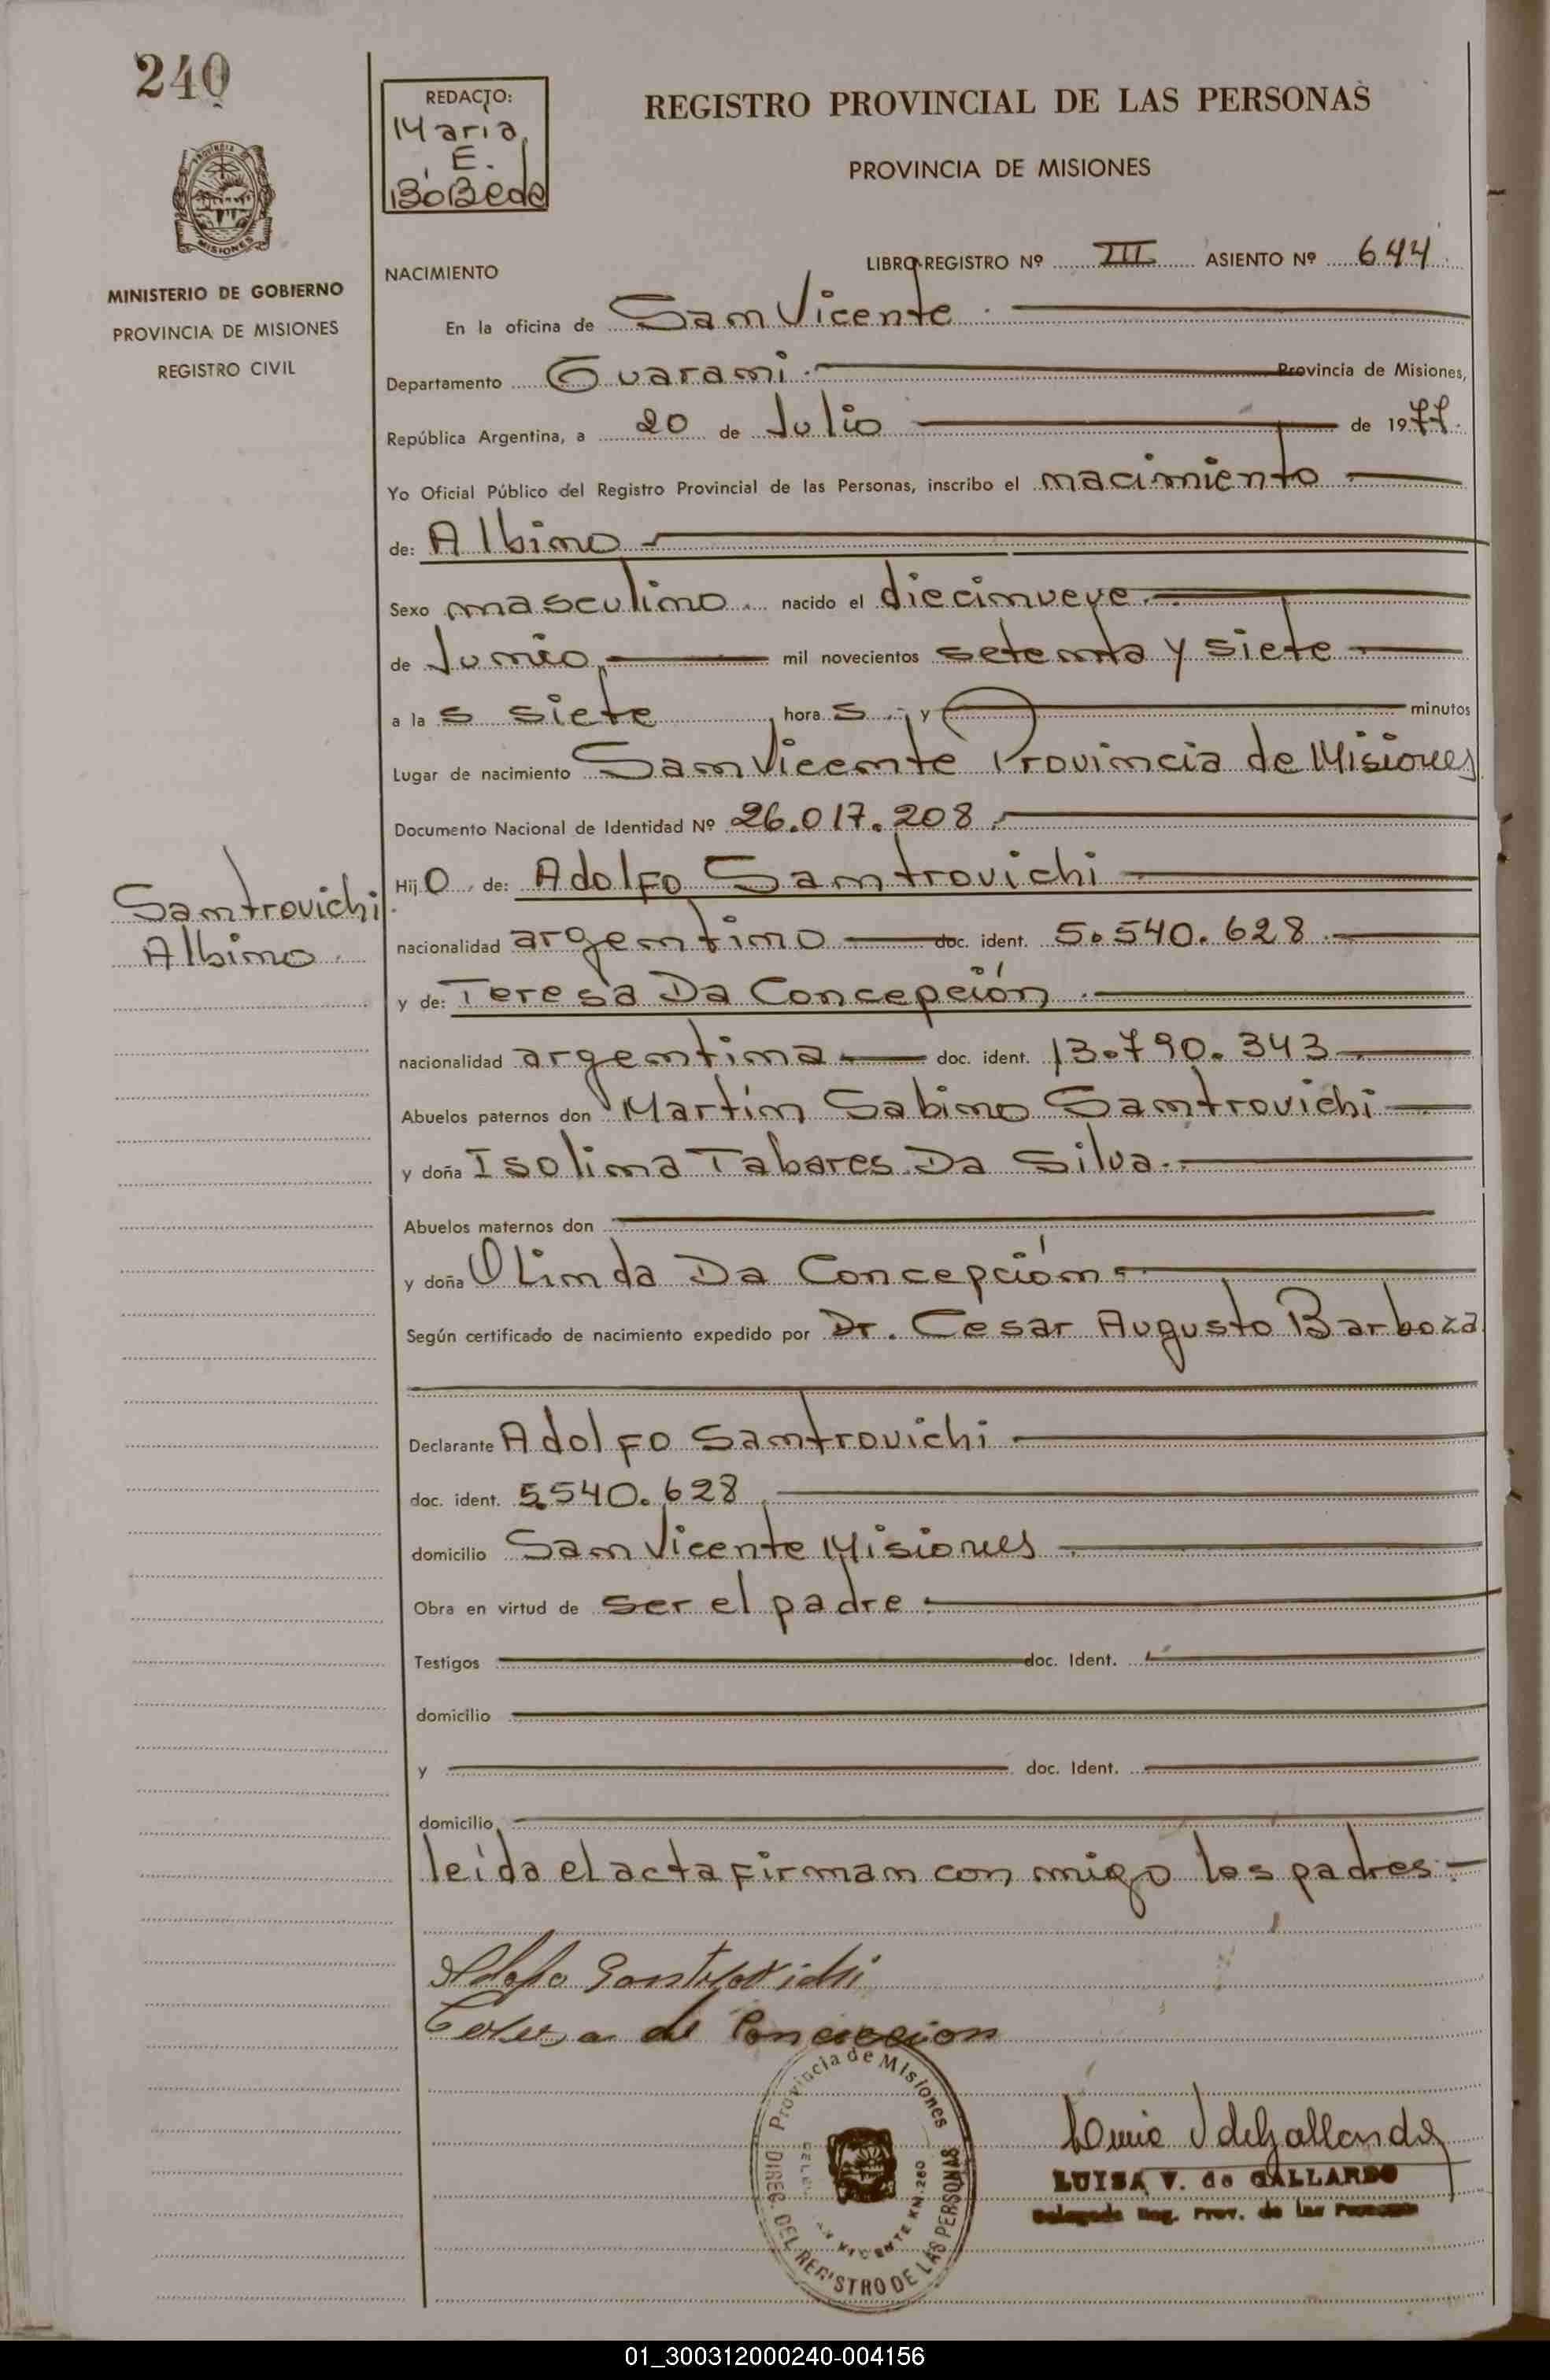 240
MISIONES
MINISTERIO DE GOBIERNO
PROVINCIA DE MISIONES
REGISTRO CIVIL
Santrovichi
Albino
REDACTO:
Maria
E.
BoBeda
REGISTRO PROVINCIAL DE LAS PERSONAS
PROVINCIA DE MISIONES
NACIMIENTO
LIBRO-REGISTRO Nº III ASIENTO Nº 644
En la oficina de San Vicente
Departamento Guarani Provincia de Misiones,
República Argentina, a 20 de Julio de 1977.
Yo Oficial Público del Registro Provincial de las Personas, inscribo el nacimiento
de: Albino
Sexo masculino nacido el diecinueve
de Junio mil novecientos setenta y siete
a la s siete hora s y minutos
Lugar de nacimiento San Vicente Provincia de Misiones
Documento Nacional de Identidad Nº 26.017.208
Hij o de: Adolfo Santrovichi
nacionalidad argentino doc. ident. 5.540.628
y de: Teresa Da Concepción
nacionalidad argentina doc. ident. 13.790.343
Abuelos paternos don Martín Sabino Santrovichi
y doña Isolina Tabares Da Silva.
Abuelos maternos don
y doña Olinda Da Concepción
Según certificado de nacimiento expedido por Dr. Cesar Augusto Barboza
Declarante Adolfo Santrovichi
doc. ident. 5.540.628
domicilio San Vicente Misiones
Obra en virtud de ser el padre
Testigos doc. Ident.
domicilio
y doc. Ident.
domicilio
leida el acta firman con migo los padres
Adolfo Santrovichi
Teresa de Concepcion
Provincia de Misiones
DIREC. DEL REGISTRO DE LAS PERSONAS
LUISA V. de GALLARDO
Delegada Reg. Prov. de las Personas
01_300312000240-004156